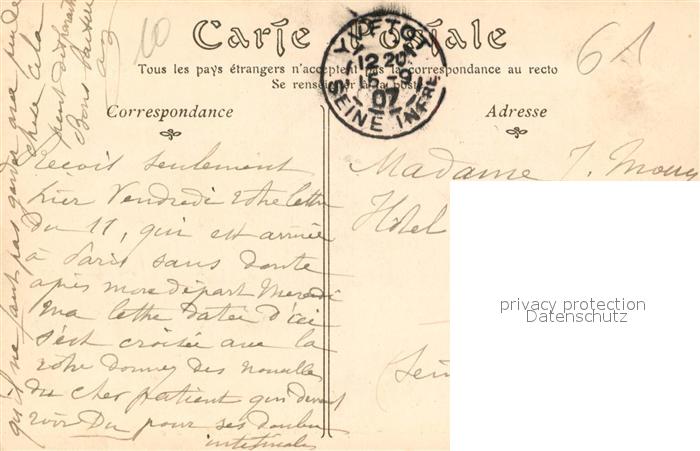 Carte Postale
Tous les pays étrangers n'acceptent pas la correspondance au recto
Se renseigner à la poste
Correspondance
Adresse
YVETOT
12 20
15 - 9
07
SEINE INFRE
60
61
Reçois seulement
hier Vendredi votre lettre
du 11, qui est arrivée
à Paris sans doute
après mon départ Mercredi
Ma lettre datée d'ici
s'est croisée avec la
votre donnez des nouvelles
du cher patient qui devait
voir Du pour ses
intestinales
qu'il ne faut pas garder
chose cela
peut
Bons baisers
Madame J.
Hôtel
privacy protection
Datenschutz